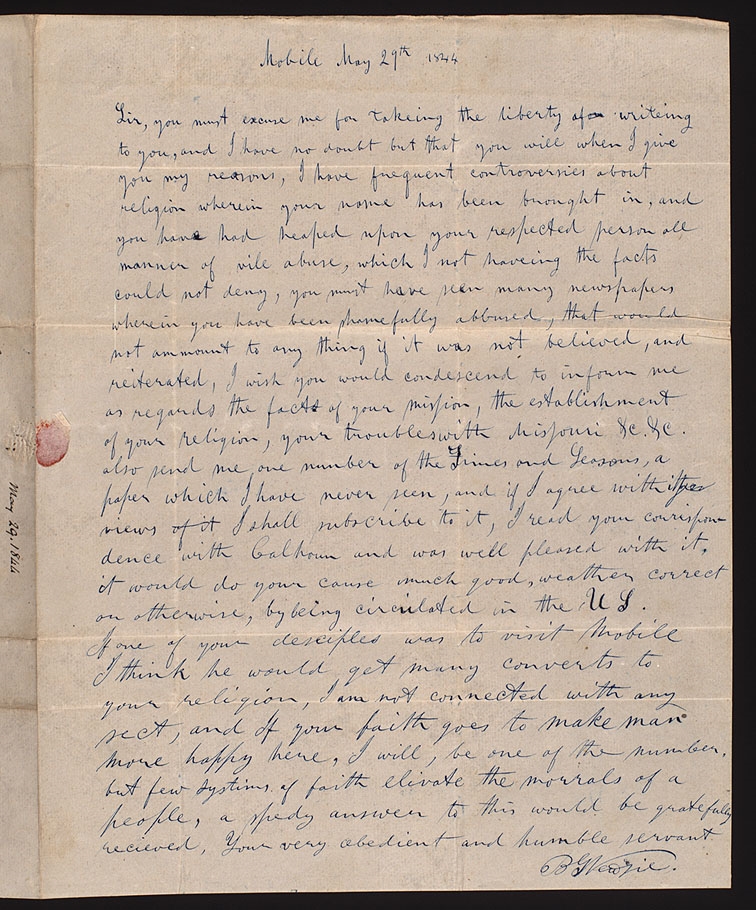 Mobile May 29th 1844
Sir, you must excuse me for takeing the liberty of writeing
to you, and I have no doubt but that you will when I give
you my reasons, I have frequent controversies about
religion wherein your name has been brought in, and
you have had heaped upon your respected person all
manner of vile abuse, which I not haveing the facts
could not deny, you must have seen many newspapers
wherein you have been shamefully abbused, that would
not ammount to any thing if it was not believed, and
reiterated, I wish you would condescend to inform me
as regards the facts of your mission, the establishment
of your religion, your troubles with Missouri &c. &c.
also send me, one number of the Times and Seasons, a
paper which I have never seen, and if I agree with
views of it I shall subscribe to it, I read your correspon
dence with Calhoun and was well pleased with it,
it would do your cause much good, weather correct
or otherwise, by being circulated in the U S.
If one of your desciples was to visit Mobile
I think he would get many converts to
your religion, I am not connected with any
sect, and If your faith goes to make man
more happy here, I will, be one of the number,
but few systims of faith elivate the morrals of a
people, a spedy answer to this would be gratefully
recieved, Your very obedient and humble servant
May 29. 1844